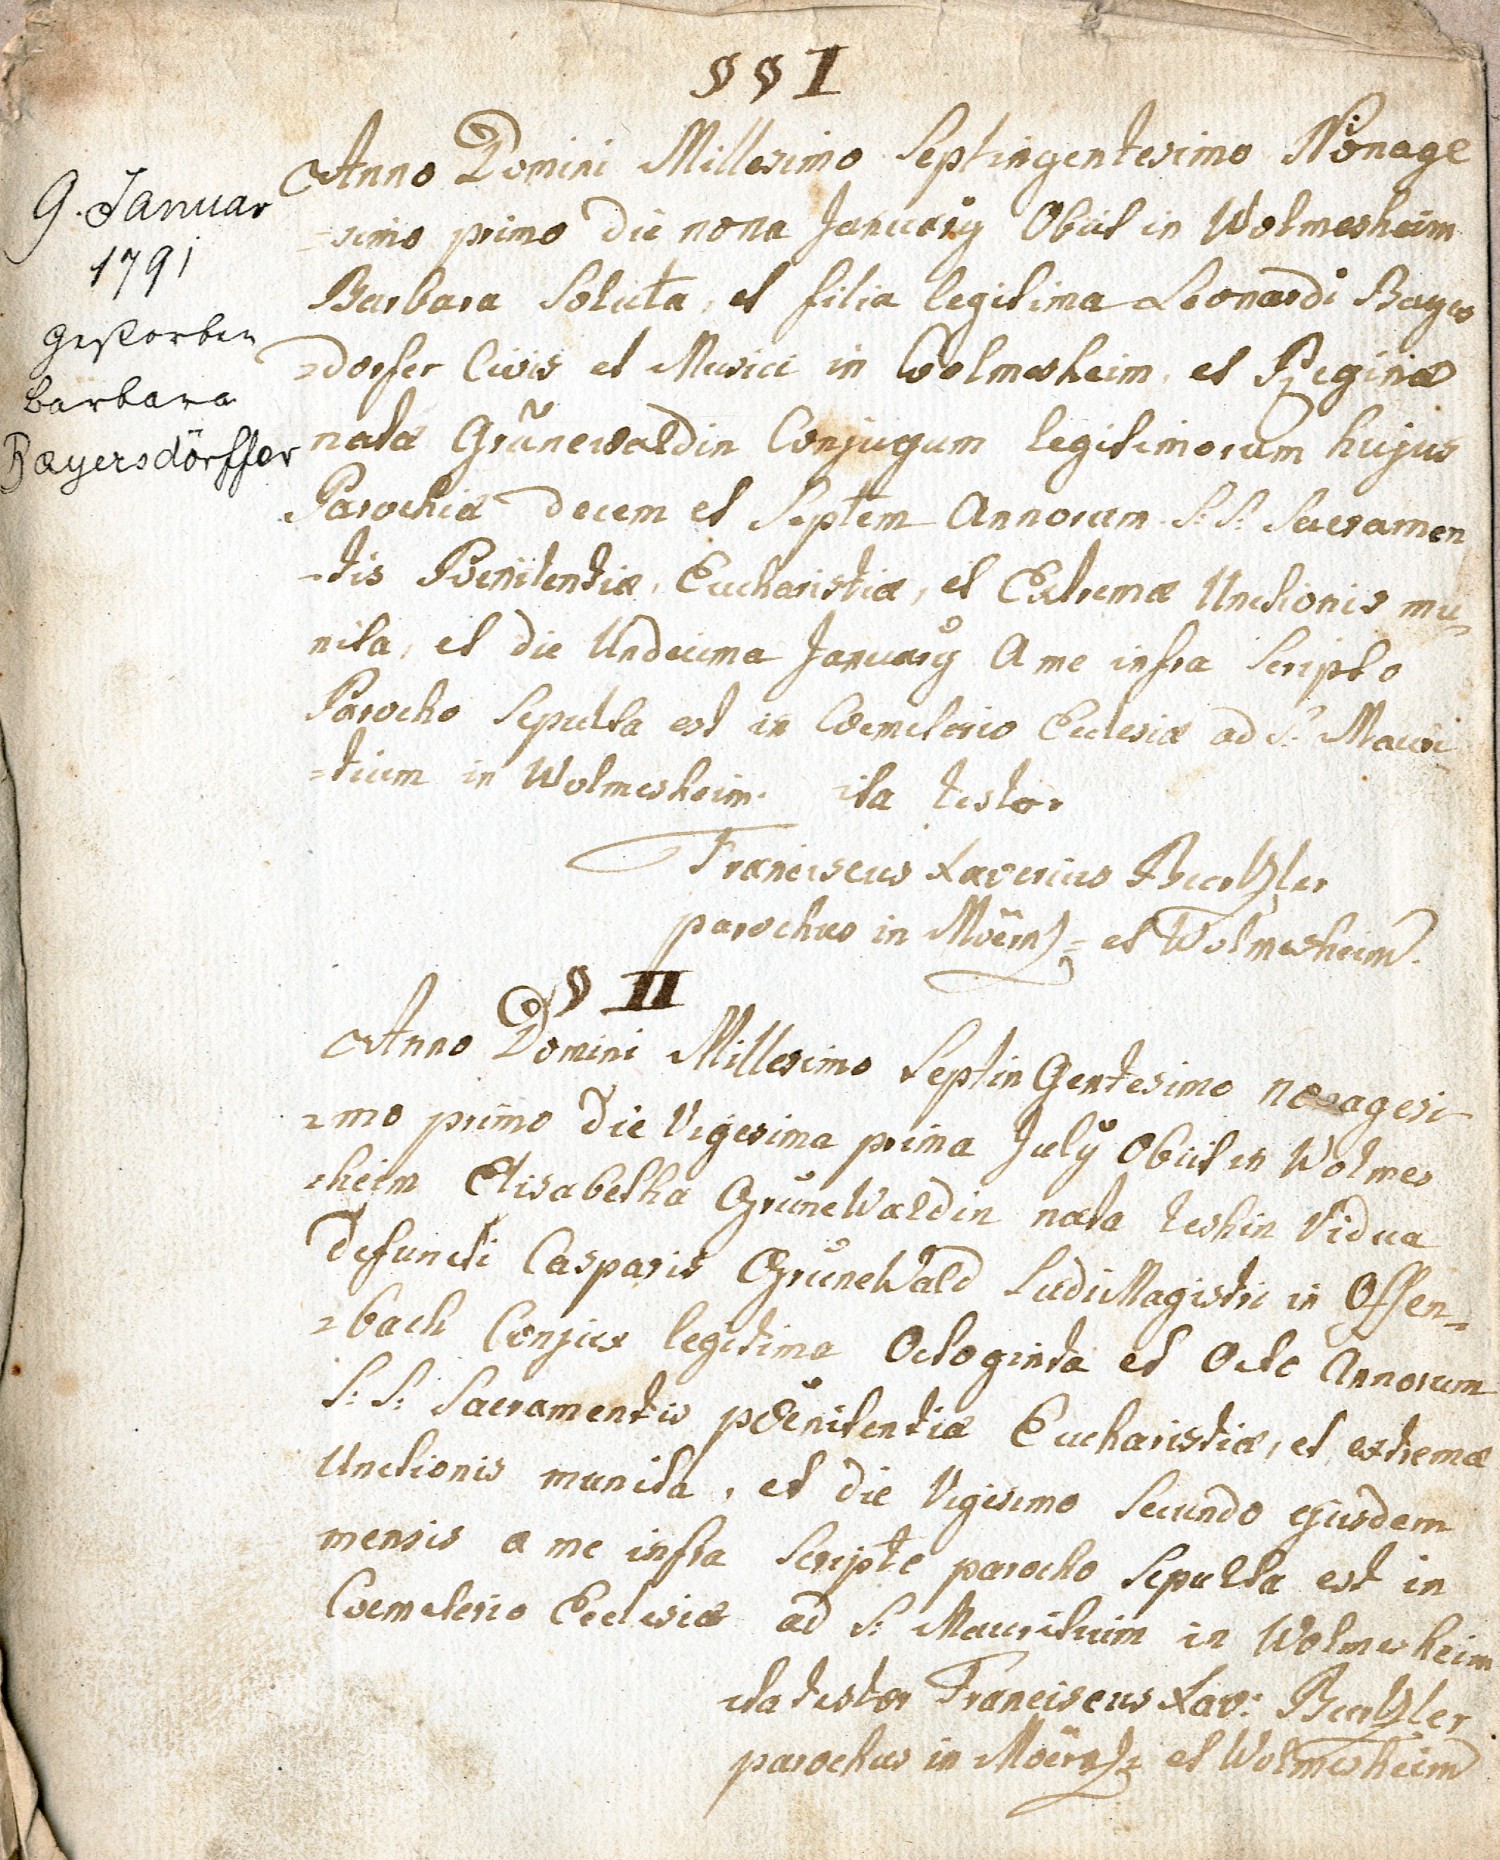 § § I
Anno Domini Millesimo Septingentesimo Nonage
=simo primo die nona Januarÿ Obiit in Wolmesheim
Barbara Soluta, et filia legitima Leonardi Bayers
=dorfer Civis et Musici in Wolmesheim, et Reginæ
natæ Grünewaldin Conjugum legitimorum hujus
Parochiæ decem et Septem Annorum S: S: Sacramen
=tis Poenitentiæ, Eucharistiæ, et Extremæ Unctionis mu
nita, et die Undecima Januarÿ A me infra Scripto
Parocho Sepulta est in Coemeterio Ecclesiæ ad S: Mauri
=tium in Wolmesheim. ita testor
Franciscus Xaverius
parochus in Moërz= et Wolmesheim.
9. Januar
1791
gestorben
Barbara
Bayersdörffer
§ II
Anno Domini Millesimo SeptinGentesimo nonagesi
=mo primo die Vigesima prima Julÿ Obiit in Wolmes
=heim Elisabetha GrüneWaldin nata Vidua
defuncti Casparis GrüneWald LudiMagistri in Offen=
=bach Conjux legitima Octoginta et Octo Annorum
S: S: Sacramentis poenitentiæ Eucharistiæ, et extremæ
Unctionis munita, et die Vigesimo Secundo ejusdem
mensis a me infra Scripto parocho Sepulta est in
Coemeterio Ecclesiæ ad S: Mauritium in Wolmesheim
ita testor Franciscus Xav:
parochus in Moërz= et Wolmesheim